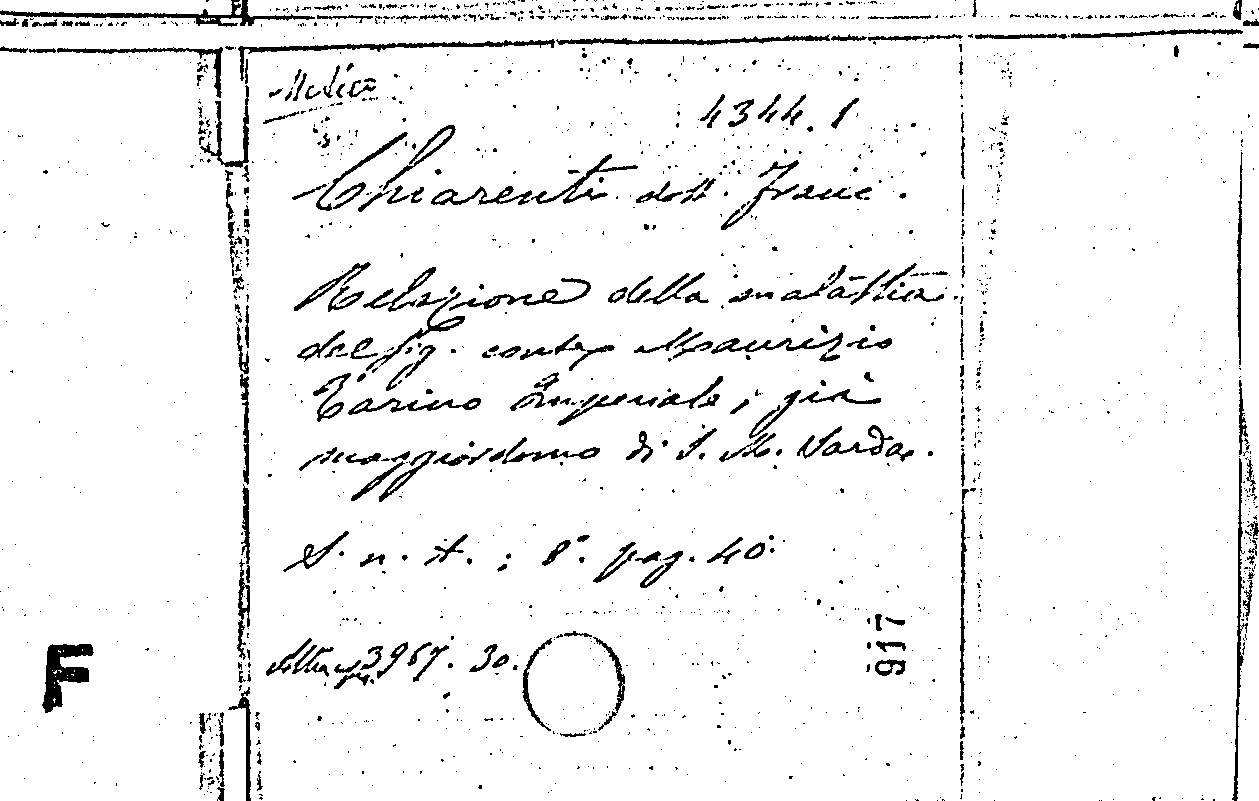 Medica
4344. 1
Chiarenti dott. Franc.
Relazione della malattia
del sig. conte Maurizio
Tarino Imperiale, già
maggiordomo di S. M. Sarda.
S. n. t. ; 8°. pag. 40.
3967. 30.
917
F